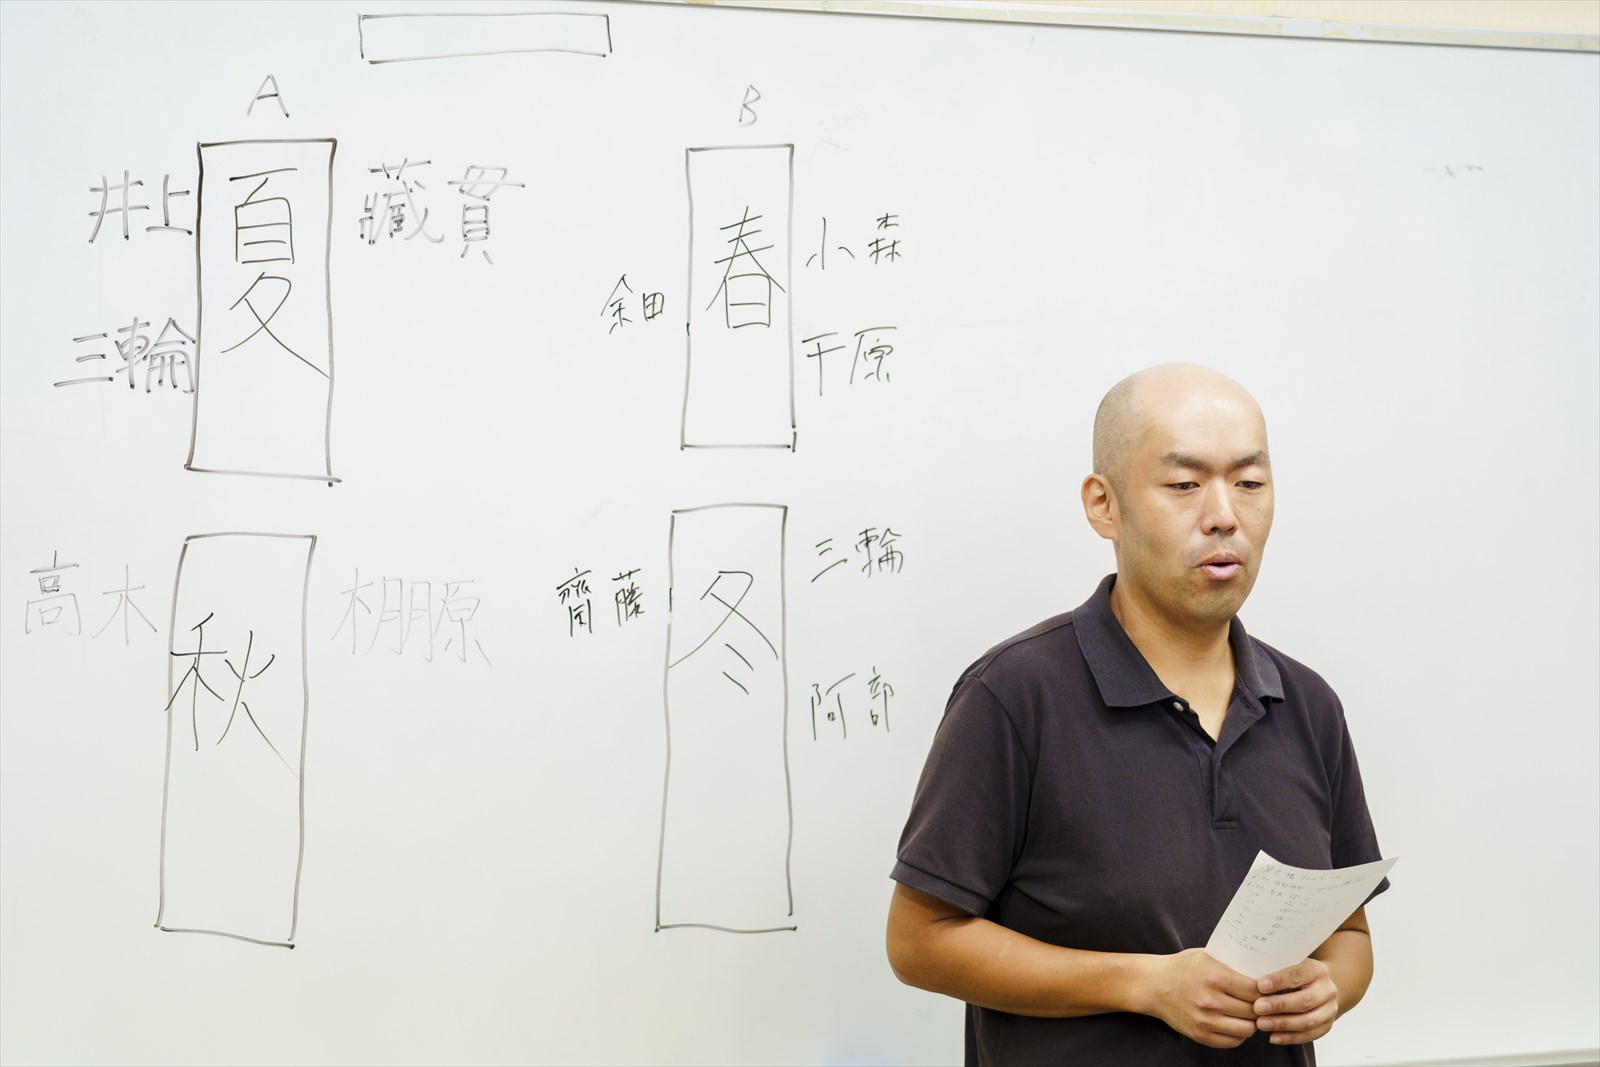 A
夏
井上
藏貫
三輪
秋
高木
棚原
B
春
小森
干原
冬
齊藤
三輪
阿部